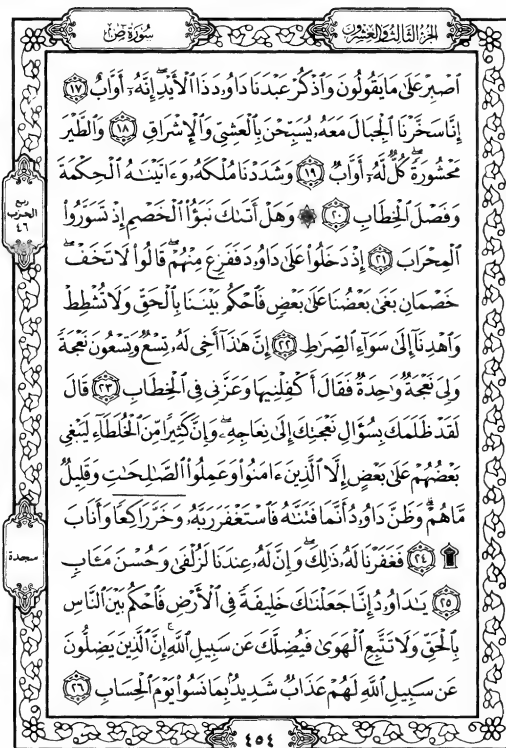 الجزء الثالث والعشرون
سورة ص
ٱصۡبِرۡ عَلَىٰ مَا يَقُولُونَ وَٱذۡكُرۡ عَبۡدَنَا دَاوُۥدَ ذَا ٱلۡأَيۡدِۖ إِنَّهُۥٓ أَوَّابٌ ١٧
إِنَّا سَخَّرۡنَا ٱلۡجِبَالَ مَعَهُۥ يُسَبِّحۡنَ بِٱلۡعَشِيِّ وَٱلۡإِشۡرَاقِ ١٨ وَٱلطَّيۡرَ
مَحۡشُورَةٗۖ كُلّٞ لَّهُۥٓ أَوَّابٞ ١٩ وَشَدَدۡنَا مُلۡكَهُۥ وَءَاتَيۡنَٰهُ ٱلۡحِكۡمَةَ
وَفَصۡلَ ٱلۡخِطَابِ ٢٠ ۞ وَهَلۡ أَتَىٰكَ نَبَؤُاْ ٱلۡخَصۡمِ إِذۡ تَسَوَّرُواْ
ٱلۡمِحۡرَابَ ٢١ إِذۡ دَخَلُواْ عَلَىٰ دَاوُۥدَ فَفَزِعَ مِنۡهُمۡۖ قَالُواْ لَا تَخَفۡۖ
خَصۡمَانِ بَغَىٰ بَعۡضُنَا عَلَىٰ بَعۡضٖ فَٱحۡكُم بَيۡنَنَا بِٱلۡحَقِّ وَلَا تُشۡطِطۡ
وَٱهۡدِنَآ إِلَىٰ سَوَآءِ ٱلصِّرَٰطِ ٢٢ إِنَّ هَٰذَآ أَخِي لَهُۥ تِسۡعٞ وَتِسۡعُونَ نَعۡجَةٗ
وَلِيَ نَعۡجَةٞ وَٰحِدَةٞ فَقَالَ أَكۡفِلۡنِيهَا وَعَزَّنِي فِي ٱلۡخِطَابِ ٢٣ قَالَ
لَقَدۡ ظَلَمَكَ بِسُؤَالِ نَعۡجَتِكَ إِلَىٰ نِعَاجِهِۦۖ وَإِنَّ كَثِيرٗا مِّنَ ٱلۡخُلَطَآءِ لَيَبۡغِي
بَعۡضُهُمۡ عَلَىٰ بَعۡضٍ إِلَّا ٱلَّذِينَ ءَامَنُواْ وَعَمِلُواْ ٱلصَّٰلِحَٰتِ وَقَلِيلٞ
مَّا هُمۡۗ وَظَنَّ دَاوُۥدُ أَنَّمَا فَتَنَّٰهُ فَٱسۡتَغۡفَرَ رَبَّهُۥ وَخَرَّۤ رَاكِعٗاۤ وَأَنَابَ
۩ ٢٤ فَغَفَرۡنَا لَهُۥ ذَٰلِكَۖ وَإِنَّ لَهُۥ عِندَنَا لَزُلۡفَىٰ وَحُسۡنَ مَـَٔابٖ
٢٥ يَٰدَاوُۥدُ إِنَّا جَعَلۡنَٰكَ خَلِيفَةٗ فِي ٱلۡأَرۡضِ فَٱحۡكُم بَيۡنَ ٱلنَّاسِ
بِٱلۡحَقِّ وَلَا تَتَّبِعِ ٱلۡهَوَىٰ فَيُضِلَّكَ عَن سَبِيلِ ٱللَّهِۚ إِنَّ ٱلَّذِينَ يَضِلُّونَ
عَن سَبِيلِ ٱللَّهِ لَهُمۡ عَذَابٞ شَدِيدُۢ بِمَا نَسُواْ يَوۡمَ ٱلۡحِسَابِ ٢٦
ربع
الحزب
٤٦
سجدة
٤٥٤